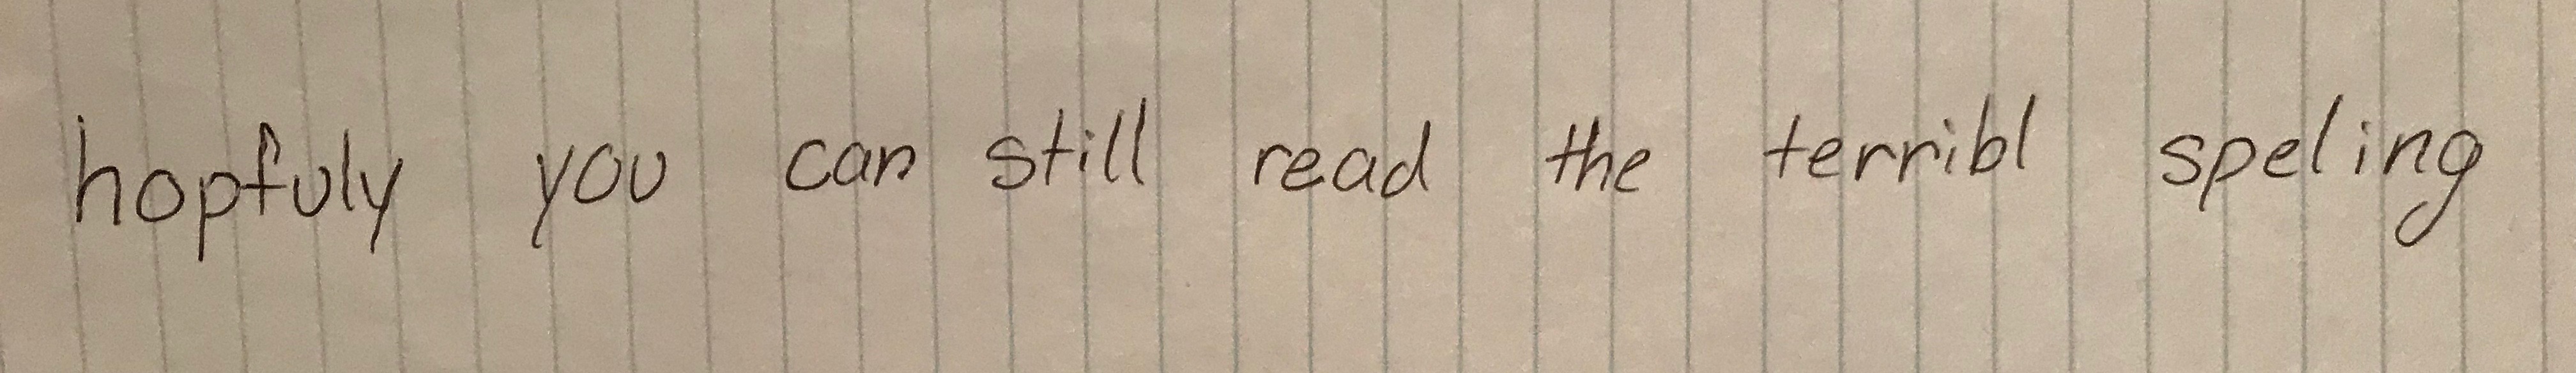 hopfuly you can still read the terribl speling